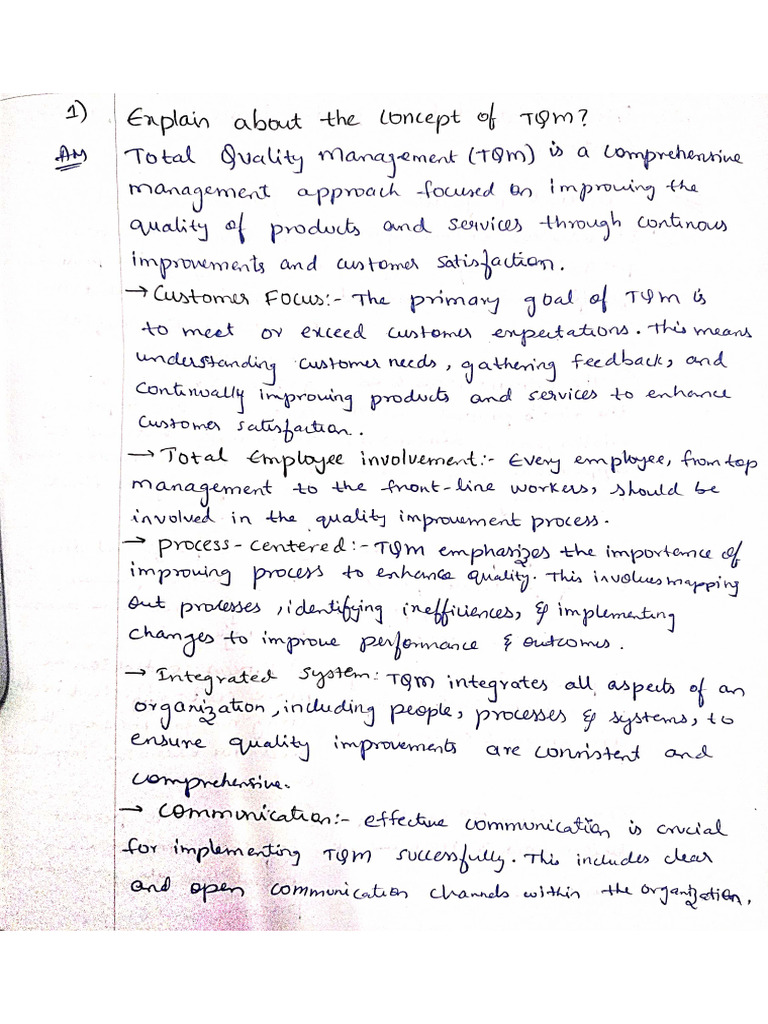 1) Explain about the concept of TQM?
Ans Total Quality Management (TQM) is a comprehensive
management approach focused on improving the
quality of products and services through continous
improvements and customer satisfaction.
→ Customer Focus:- The primary goal of TQM is
to meet or exceed customer expectations. This means
understanding customer needs, gathering feedback, and
continually improving products and services to enhance
customer satisfaction.
→ Total Employee involvement:- Every employee, from top
management to the front-line workers, should be
involved in the quality improvement process.
→ process-centered:- TQM emphasizes the importance of
improving process to enhance quality. This involves mapping
out processes, identifying inefficiences, & implementing
changes to improve performance & outcomes.
→ Integrated System: TQM integrates all aspects of an
organization, including people, processes & systems, to
ensure quality improvements are consistent and
comprehensive.
→ communication:- effective communication is crucial
for implementing TQM successfully. This includes clear
and open communication channels within the organization.